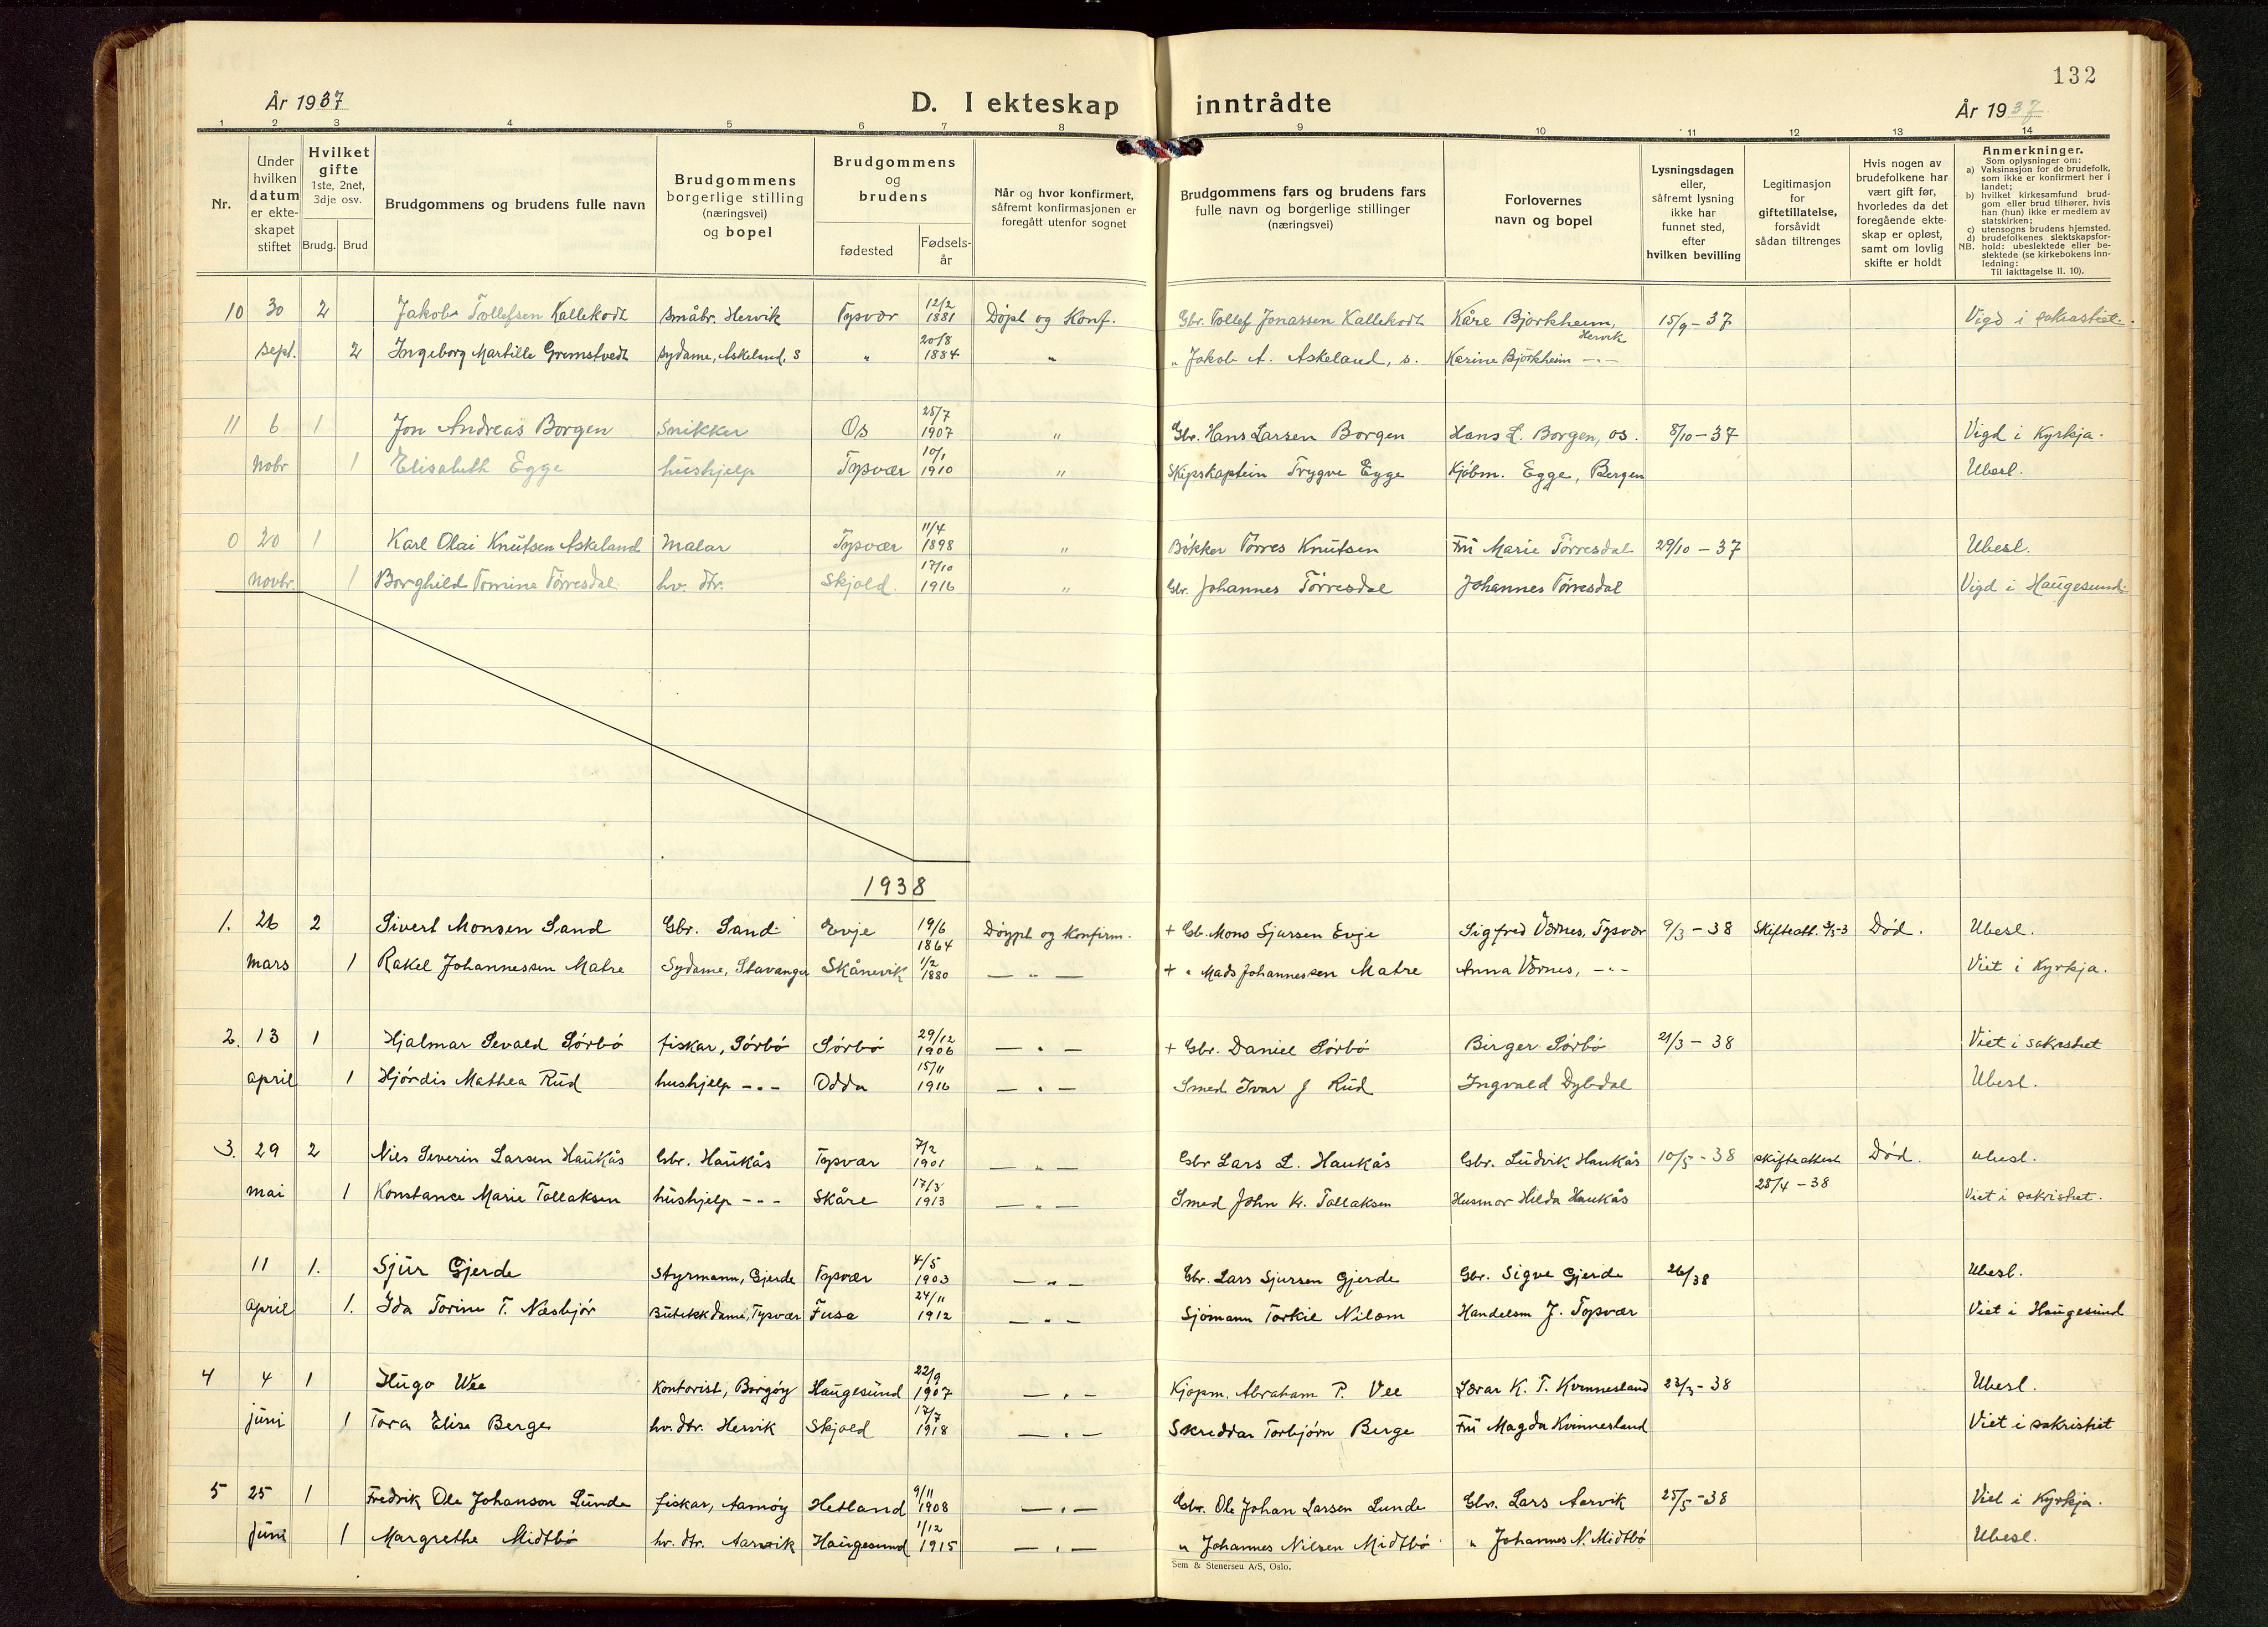 132
År 1937
D. I ekteskap inntrådte
År 1937
1 2 3 4 5 6 7 8 9 10 11 12 13 14
Nr.
Under hvilken datum er ekteskapet stiftet
Hvilket gifte 1ste, 2net, 3dje osv.
Brudg. Brud
Brudgommens og brudens fulle navn
Brudgommens borgerlige stilling (næringsvei) og bopel
Brudgommens og brudens
fødested
Fødsels-år
Når og hvor konfirmert, såfremt konfirmasjonen er foregått utenfor sognet
Brudgommens fars og brudens fars fulle navn og borgerlige stillinger (næringsvei)
Forlovernes navn og bopel
Lysningsdagen eller, såfremt lysning ikke har funnet sted, efter hvilken bevilling
Legitimasjon for giftetillatelse, forsåvidt sådan tiltrenges
Hvis nogen av brudefolkene har vært gift før, hvorledes da det foregående ekteskap er opløst, samt om lovlig skifte er holdt
Anmerkninger.
Som oplysninger om:
a) Vaksinasjon for de brudefolk, som ikke er konfirmert her i landet;
b) hvilket kirkesamfund brudgom eller brud tilhører, hvis han (hun) ikke er medlem av statskirken;
c) utensogns brudens hjemsted.
d) brudefolkenes slektskapsforhold: ubeslektede eller beslektede (se kirkebokens innledning:
NB.
Til iakttagelse II. 10).
10 30 2 Jakob Tollefsen Kallekodt Småbr. Hervik Tysvær 12/2 1881 Döpt og Konf. Gbr. Tollef Jonassen Kallekodt Kåre Björkheim, Hervik 15/9-37 Vigd i sakrastiet.
sept. 2 Ingeborg Martille Gremstvedt Sydame, Askeland, S " 20/8 1884 " " Jakob A. Askeland, s. Karine Björkheim -"-
11 6 1 Jon Andreas Borgen Snikker Os 25/7 1907 " Gbr. Hans Larsen Borgen Hans L. Borgen, os. 8/10-37 Vigd i Kyrkja.
Nobr 1 Elisabeth Egge hushjelp Tysvær 10/1 1910 " Skipskaptein Trygve Egge Kjöbm. Egge, Bergen Ubesl.
0 20 1 Karl Olai Knutsen Askeland Malar Tysvær 11/4 1898 " Bökker Törres Knutsen Fru Marie Törresdal 29/10-37 Ubesl.
Novbr. 1 Borghild Tomine Törresdal hv. dtr. Skjold. 17/10 1916 " Gbr. Johannes Törresdal Johannes Törresdal Vigd i Haugesund.
1938
1. 26 2 Sivert Monsen Sand Gbr. Sand Evje 19/6 1864 Döypt og Konfirm. + Gb. Mons Sjursen Evje Sigfred Värnes, Tysvær 9/3-38 Skifteatt. Död. Ubesl.
Mars 1 Rakel Johannessen Matre Sydame, Stavanger Skånevik 1/2 1880 — " — + " Mads Johannessen Matre Anna Värnes, -"- Viet i Kyrkja.
2. 13 1 Hjalmar Sevald Sörbö fiskar, Sörbö Sörbö 29/12 1906 — " — + Gbr. Daniel Sörbö Birger Sörbö 21/3-38 Viet i sakristiet
april 1 Hjördis Mathea Rud hushjelp -"- Odda 15/11 1916 — " — Smed Ivar J Rud Ingvald Dybdal Ubesl.
3. 29 2 Nils Severin Larsen Haukås Gbr. Haukås Tysvær 7/2 1901 — " — Gbr Lars L. Haukås Gbr. Ludvik Haukås 10/5-38 Skifteattest 28/4-38 Död. ubesl.
mai 1 Konstance Marie Tollaksen hushjelp -"- Skåre 17/3 1913 — " — Smed John Kr. Tollaksen Husmor Hilda Haukås Viet i sakristiet.
11 1. Sjur Gjerde Styrmann, Gjerde Tysvær 4/5 1903 — " — Gbr. Lars Sjursen Gjerde Gbr. Sigve Gjerde 26/38 Ubesl.
april 1. Ida Torine T. Næsbjör Butikkdame, Tysvær Fusa 24/11 1912 — " — Sjömann Torkil Nilsen Handelsm J. Tysvær Viet i Haugesund
4 4 1 Hugo Wee Kontorist, Borgöy Haugesund 22/9 1907 — " — Kjøpm. Abraham P. Vee Lærar K. T. Kvinnesland 23/3-38 Ubesl.
juni 1 Tora Elise Berge hv. dtr. Hervik Skjold 17/7 1918 — " — Skreddar Torbjörn Berge Fru Magda Kvinnesland Viet i sakristiet
5 25 1 Fredrik Ole Johanson Lunde fiskar, Aamöy Hetland 9/11 1908 — " — Gbr. Ole Johan Larsen Lunde Gbr. Lars Aarvik 25/5-38 Viet i Kyrkja.
Juni 1 Margrethe Midtbö hv. dtr. Aarvik Haugesund 1/12 1915 — " — " Johannes Nilsen Midtbö " Johannes N. Midtbö Ubesl.
Sem & Stenersen A/S, Oslo.